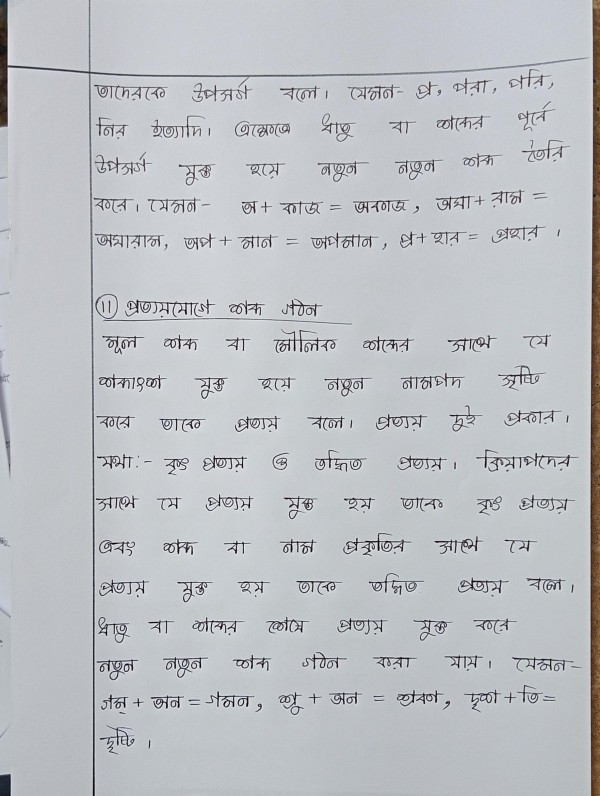 তাদেরকে উপসর্গ বলে। যেমন- প্র, পরা, পরি,
নির ইত্যাদি। এক্ষেত্রে ধাতু বা শব্দের পূর্বে
উপসর্গ যুক্ত হয়ে নতুন নতুন শব্দ তৈরি
করে। যেমন- অ + কাজ = অকাজ, অঘা + রাম =
অঘারাম, অপ + মান = অপমান, প্র + হার = প্রহার।
(১১) প্রত্যয়যোগে শব্দ গঠন
মূল শব্দ বা মৌলিক শব্দের সাথে যে
শব্দাংশ যুক্ত হয়ে নতুন নামপদ সৃষ্টি
করে তাকে প্রত্যয় বলে। প্রত্যয় দুই প্রকার।
যথা:- কৃৎ প্রত্যয় ও তদ্ধিত প্রত্যয়। ক্রিয়াপদের
সাথে যে প্রত্যয় যুক্ত হয় তাকে কৃৎ প্রত্যয়
এবং শব্দ বা নাম প্রকৃতির সাথে যে
প্রত্যয় যুক্ত হয় তাকে তদ্ধিত প্রত্যয় বলে।
ধাতু বা শব্দের শেষে প্রত্যয় যুক্ত করে
নতুন নতুন শব্দ গঠন করা যায়। যেমন-
গম্ + অন = গমন, শ্রু + অন = শ্রবণ, দৃশ + তি =
দৃষ্টি।